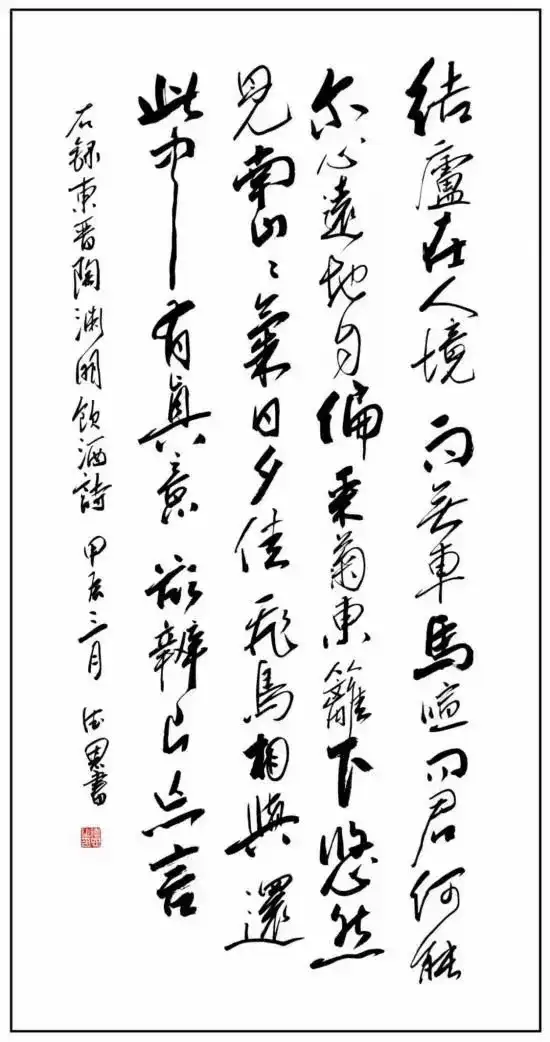 結廬在人境而無車馬喧問君何能
尔心遠地自偏采菊東籬下悠然
見南山〻氣日夕佳飛鳥相與還
此中有真意欲辨已忘言
右録東晋陶渊明飲酒詩 甲辰三月 德恩書